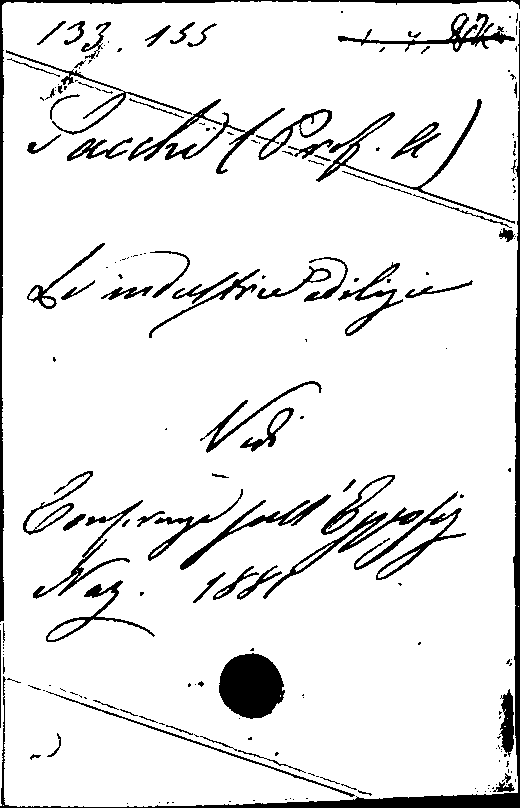 133. 155
Sacchi (Prof. A)
Le industrie edilizie
Vedi
Conferenze sull'Esposiz
Naz. 1881